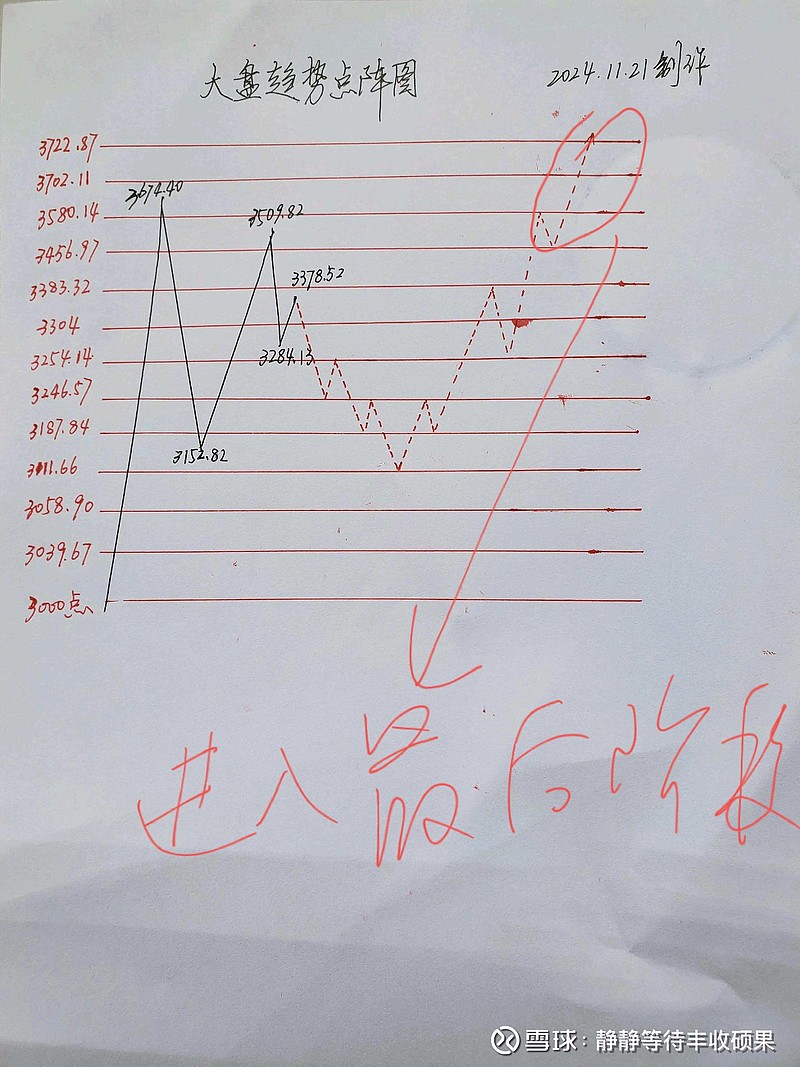 大盘趋势点阵图
2024.11.21制作
3722.87
3702.11
3674.40
3580.14
3509.82
3456.97
3378.52
3383.32
3304
3284.13
3254.14
3246.57
3187.84
3152.82
3111.66
3058.90
3039.67
3000点
进入最后阶段
雪球:静静等待丰收硕果